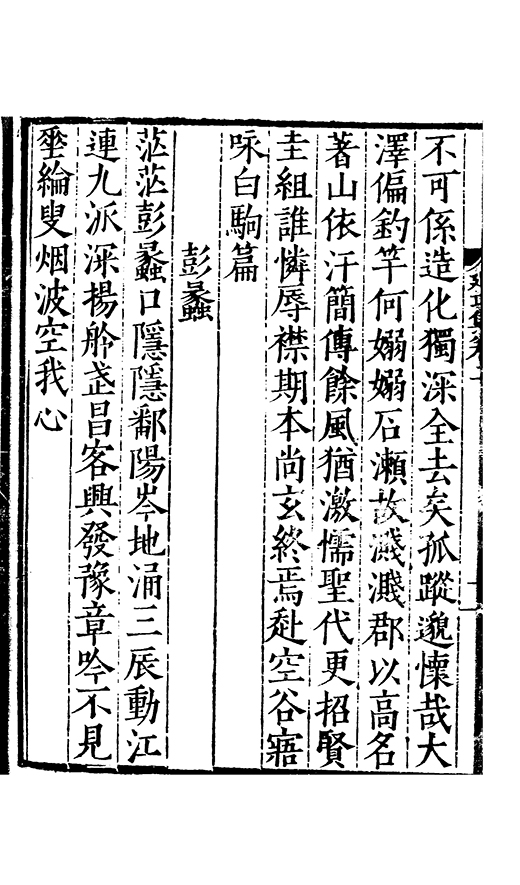 不可係造化獨深全去矣孤蹤邈懷哉大
澤偏釣竿何嫋嫋石瀨故濺濺郡以高名
著山依汗簡傳餘風猶激懦聖代更招賢
圭組誰憐辱襟期本尚玄終焉赴空谷寤
咏白駒篇
彭蠡
茫茫彭蠡口隱隱鄱陽岑地涌三辰動江
連九派深揚舲武昌客興發豫章吟不見
垂綸叟烟波空我心